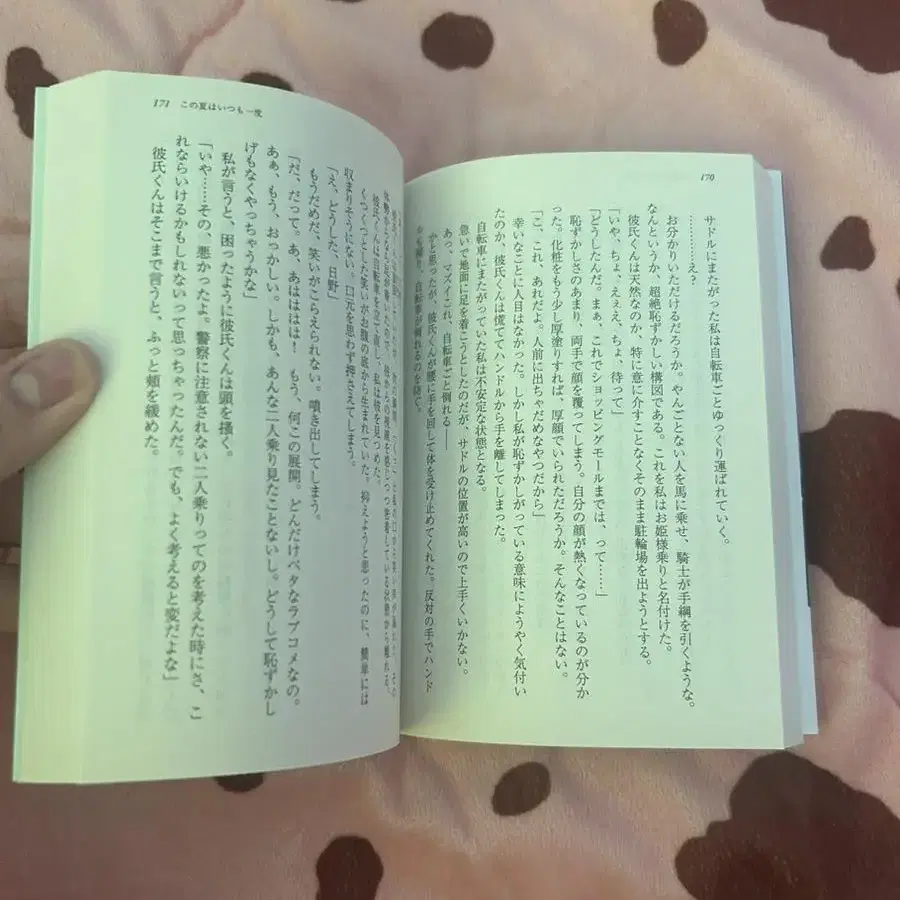 170
サドルにまたがった私は自転車ごとゆっくり運ばれていく。
………え?
お分かりいただけるだろうか。やんごとない人を馬に乗せ、騎士が手綱を引くような。
なんというか、超絶恥ずかしい構図である。これを私はお姫様乗りと名付けた。
彼氏くんは天然なのか、特に意に介すことなくそのまま駐輪場を出ようとする。
「いや、ちょ、えぇえ、ちょ、待って」
「どうしたんだ。まぁ、これでショッピングモールまでは、って……」
恥ずかしさのあまり、両手で顔を覆ってしまう。自分の顔が熱くなっているのが分か
った。化粧をもう少し厚塗りすれば、厚顔でいられただろうか。そんなことはない。
「こ、これ、あれだよ。人前に出ちゃだめなやつだから」
幸いなことに人目はなかった。しかし私が恥ずかしがっている意味にようやく気付い
たのか、彼氏くんは慌ててハンドルから手を離してしまった。
自転車にまたがっていた私は不安定な状態となる。
急いで地面に足を着こうとしたのだが、サドルの位置が高いので上手くいかない。
あっ、マズイこれ、自転車ごと倒れる――
かと思ったが、彼氏くんが腰に手を回して体を受け止めてくれた。反対の手でハンド
も握り、自転車が倒れるのを防ぐ。
171 この夏はいつも一度
彼氏くんは自転車を立て直し、私は彼を見つめた。
くつくつとした笑いがお腹の底から生まれていた。抑えようと思ったのに、簡単には
収まりそうにない。口元を思わず押さえてしまう。
「え、どうした、日野」
もうだめだ、笑いがこらえられない。噴き出してしまう。
「だ、だって。あ、あはははは! もう、何この展開。どんだけベタなラブコメなの。
あぁ、もう、おっかしい。しかも、あんな二人乗り見たことないし。どうして恥ずかし
げもなくやっちゃうかな」
私が言うと、困ったように彼氏くんは頭を掻く。
「いや……その、悪かったよ。警察に注意されない二人乗りってのを考えた時にさ、こ
れならいけるかもしれないって思っちゃったんだ。でも、よく考えると変だよな」
彼氏くんはそこまで言うと、ふっと頬を緩めた。